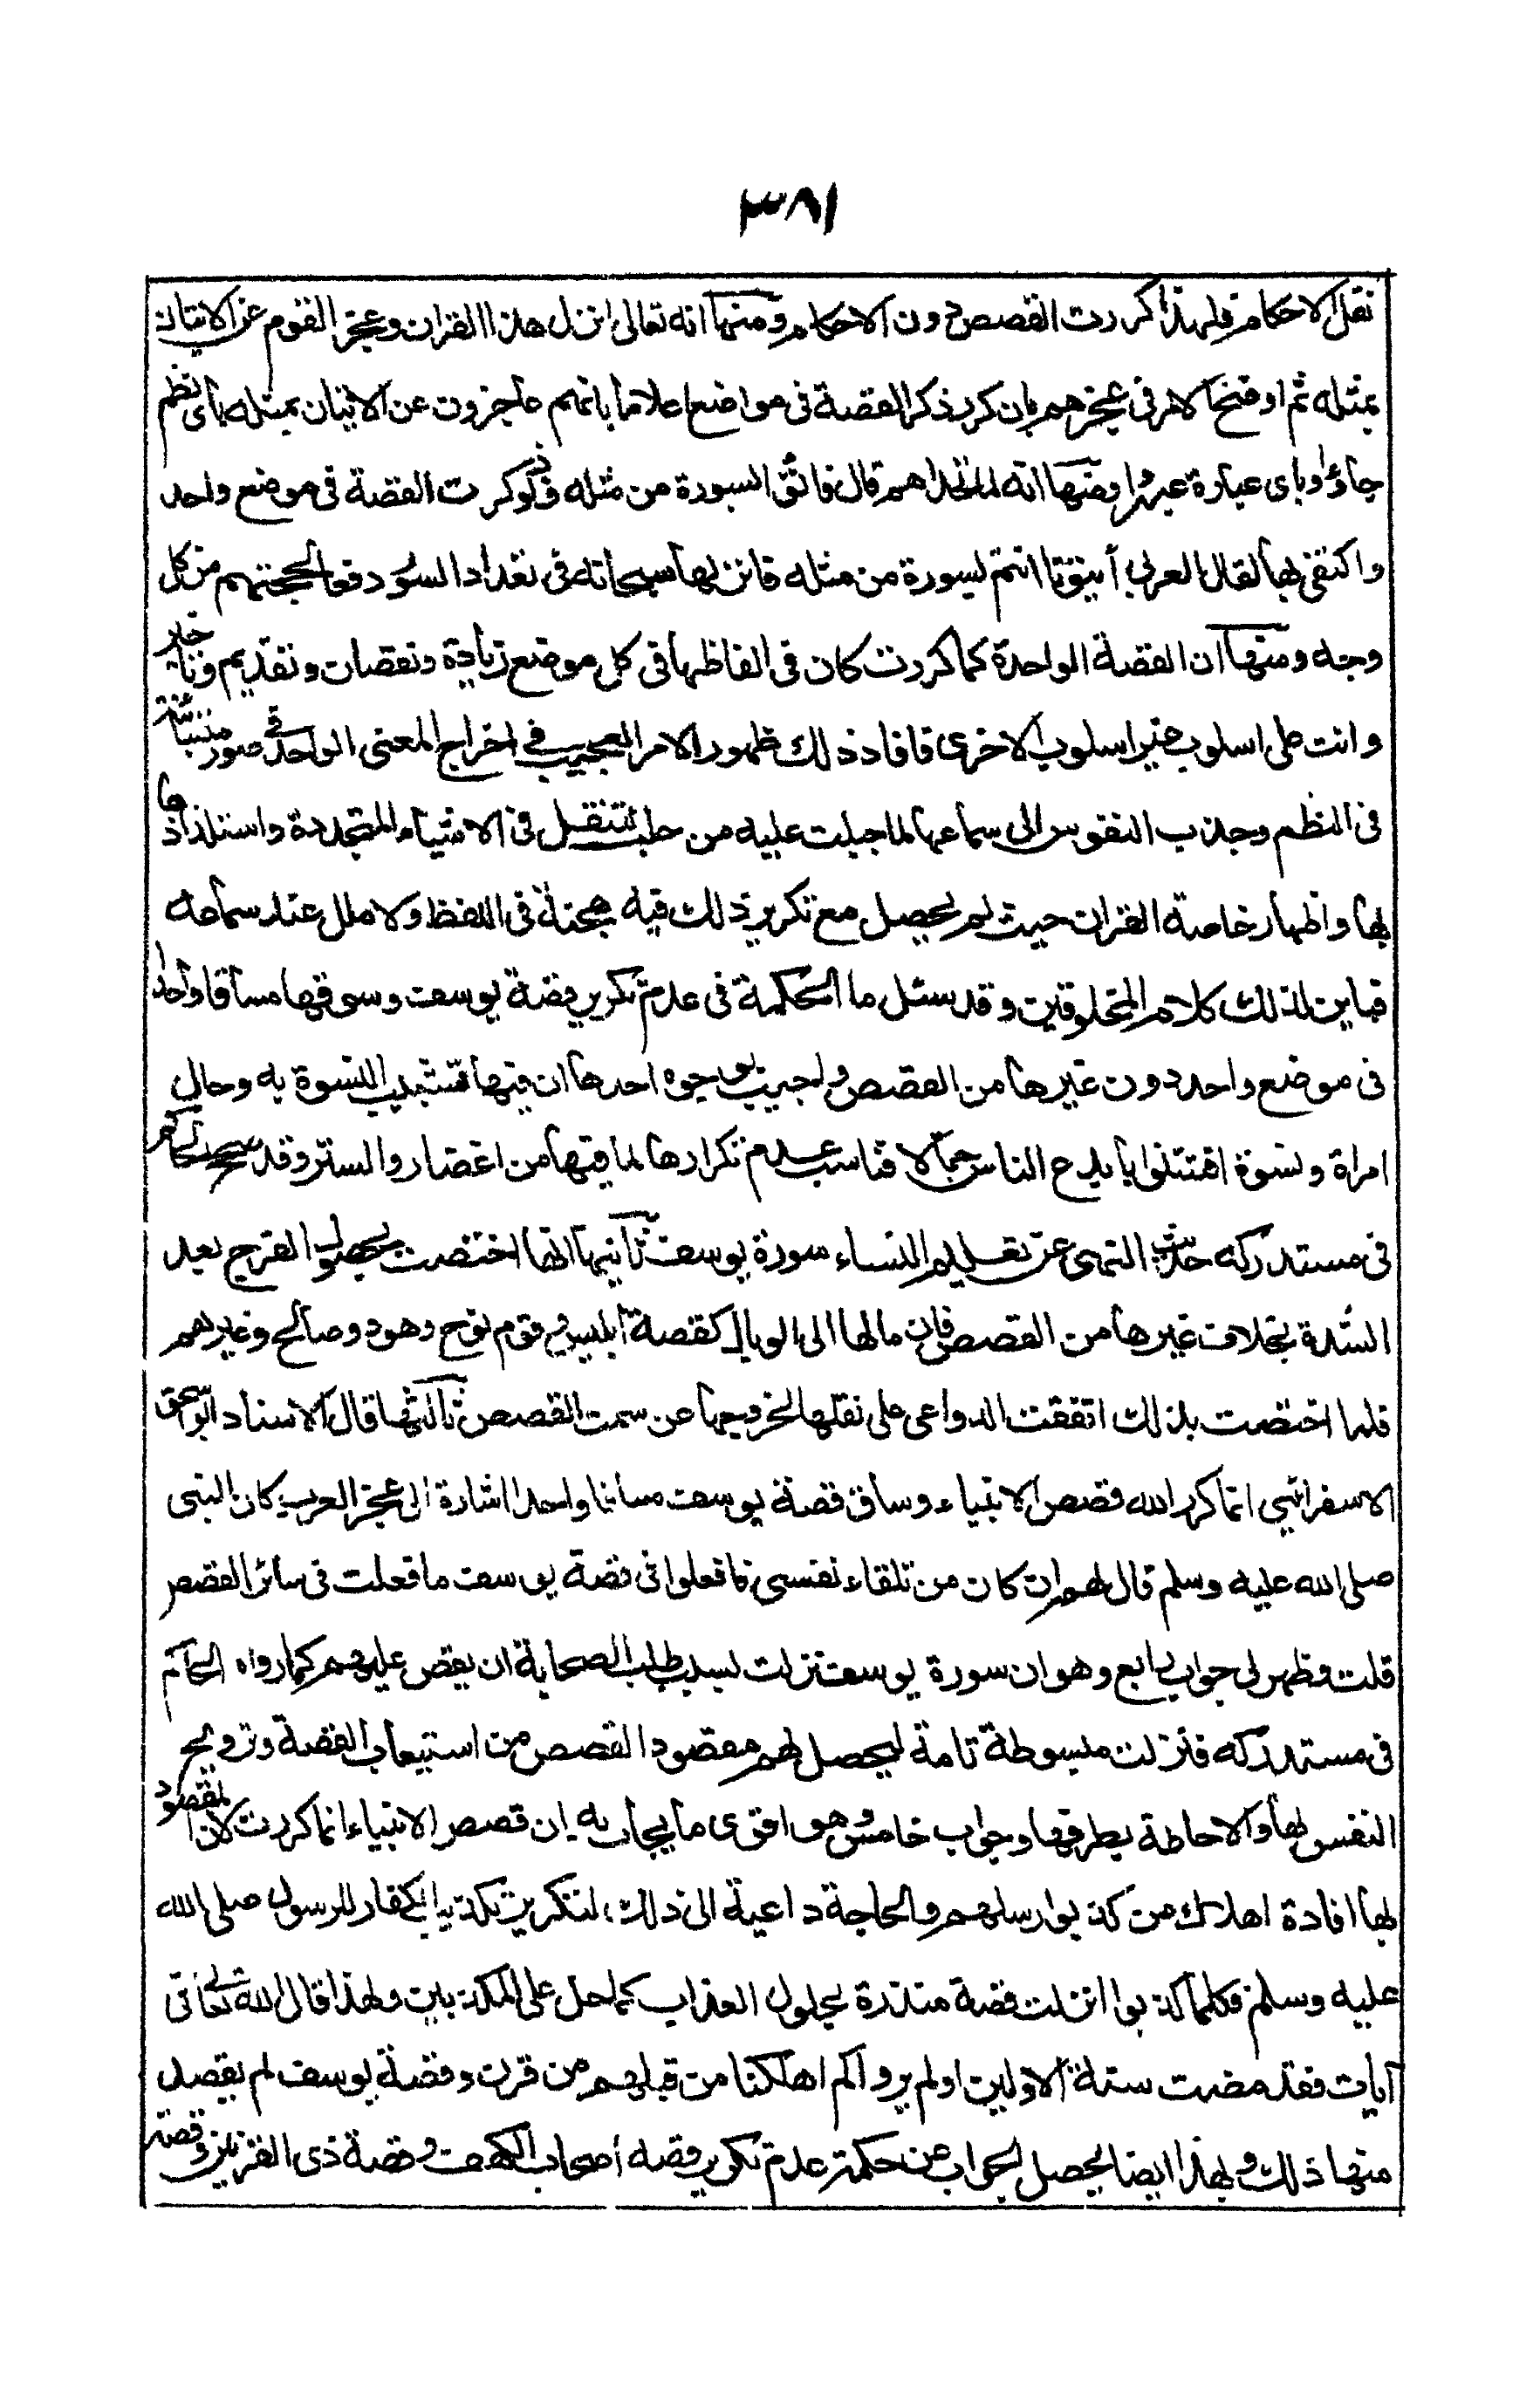 ٣٨١
نقل الاحكام فلهذا كررت القصص دون الاحكام ومنها انه تعالى انزل هذا القران وعجز القوم عن الاتيان
بمثله ثم اوضح الامر فى عجزهم بان كرر ذكر القصة فى مواضع اعلاما بانهم عاجزون عن الاتيان بمثله باى نظم
جاؤا وباى عبارة عبروا ومنها انه لما تحداهم قال فاتوا بسورة من مثله فلو ذكرت القصة فى موضع واحد
واكتفى بها لقال العربى أيتونا انتم بسورة من مثله فانزلها سبحانه فى تعداد السور دفعا لحجتهم من كل
وجه ومنها ان القصة الواحدة كما كررت كان فى الفاظها فى كل موضع زيادة ونقصان وتقديم وتاخير
واتت على اسلوب غير اسلوب الاخرى فافاد ذلك ظهور الامر العجيب فى اخراج المعنى الواحد فى صور متبائنة
فى النظم وجذب النفوس الى سماعها لما جبلت عليه من حب التنقل فى الاشياء المتجددة واستلذاذها
بها واظهار خاصة القران حيث لم يحصل مع تكرير ذلك فيه هجنة فى اللفظ ولا ملل عند سماعه
فباين لذلك كلام المخلوقين وقد سئل ما الحكمة فى عدم تكرير قصة يوسف وسوقها مساقا واحدا
فى موضع واحد دون غيرها من القصص واجيب بوجوه احدها ان فيها تشبيب النسوة به وحال
امراة ونسوة افتتنوا بابدع الناس جمالا فناسب عدم تكرارها لما فيها من اغضاء والستر وقد صحح الحاكم
فى مستدركه حديث النهى عن تعليم النساء سورة يوسف ثانيها انها اختصت بحصول الفرج بعد
الشدة بخلاف غيرها من القصص فان مالها الى الوبال كقصة ابليس وقوم نوح وهود وصالح وغيرهم
فلما اختصت بذلك اتفقت الدواعى على نقلها لخروجها عن سمت القصص ثالثها قال الاستاد ابو اسحق
الاسفرائنى انما كرر الله قصص الانبياء وساق قصة يوسف مساقا واحدا اشارة الى عجز العرب كان النبى
صلى الله عليه وسلم قال لهم ان كان من تلقاء نفسى فافعلوا فى قصة يوسف ما فعلت فى سائر القصص
قلت وظهر لى جواب رابع وهو ان سورة يوسف نزلت بسبب طلب الصحابة ان يقص عليهم كما رواه الحاكم
فى مستدركه فنزلت مبسوطة تامة ليحصل لهم مقصود القصص من استيعاب القصة وترويح
النفس بها والاحاطة بطرفيها وجواب خامس وهو اقوى ما يجاب به ان قصص الانبياء انما كررت لان المقصود
بها افادة اهلاك من كذبوا رسلهم والحاجة داعية الى ذلك، لتكرير تكذيب الكفار للرسول صلى الله
عليه وسلم فكلما كذبوا انزلت قصة منذرة بحلول العذاب كما حل على المكذبين ولهذا قال الله تعالى فى
آيات فقد مضت سنة الاولين اولم يروا كم اهلكنا من قبلهم من قرن وقصة يوسف لم يقصد
منها ذلك وبهذا ايضا يحصل الجواب عن حكمة عدم تكرير قصه أصحاب الكهف وقصة ذى القرنين وقصة